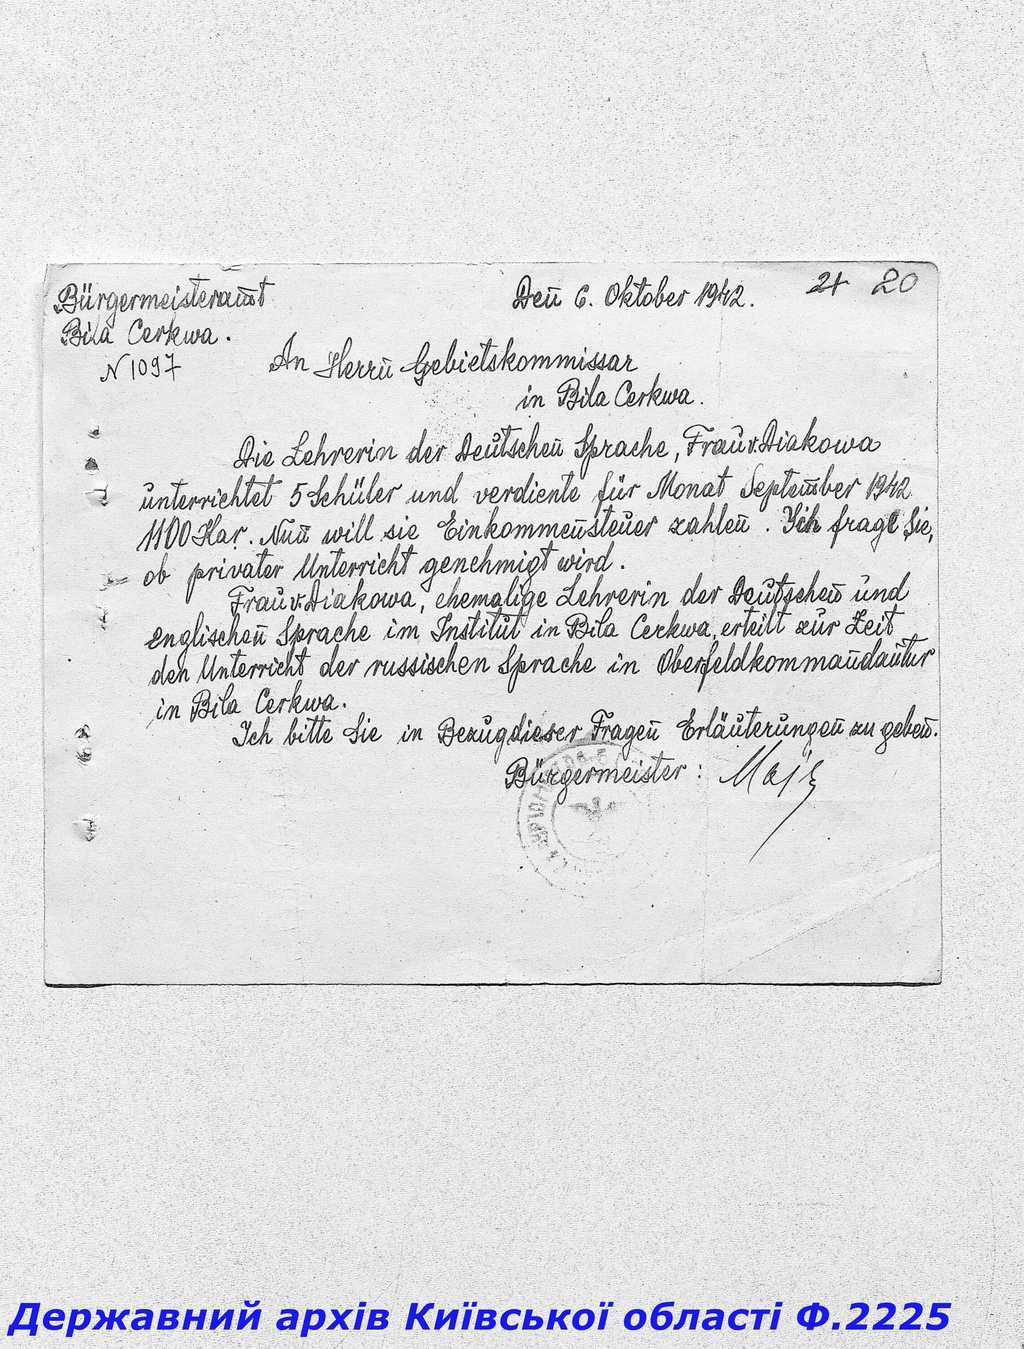 Bürgermeisteramt
Bila Cerkwa.
N 1097
Den 6. Oktober 1942.
21 20
An Herrn Gebietskommissar
in Bila Cerkwa.
Die Lehrerin der Deutschen Sprache, Frau v. Diakowa
unterrichtet 5 Schüler und verdiente für Monat September 1942
1100 Kar. Nun will sie Einkommensteuer zahlen. Ich frage Sie,
ob privater Unterricht genehmigt wird.
Frau v. Diakowa, ehemalige Lehrerin der Deutschen und
englischen Sprache im Institut in Bila Cerkwa, erteilt zur Zeit
den Unterricht der russischen Sprache in Oberfeldkommandantur
in Bila Cerkwa.
Ich bitte Sie in Bezug dieser Fragen Erläuterungen zu geben.
Bürgermeister:
Державний архів Київської області Ф.2225